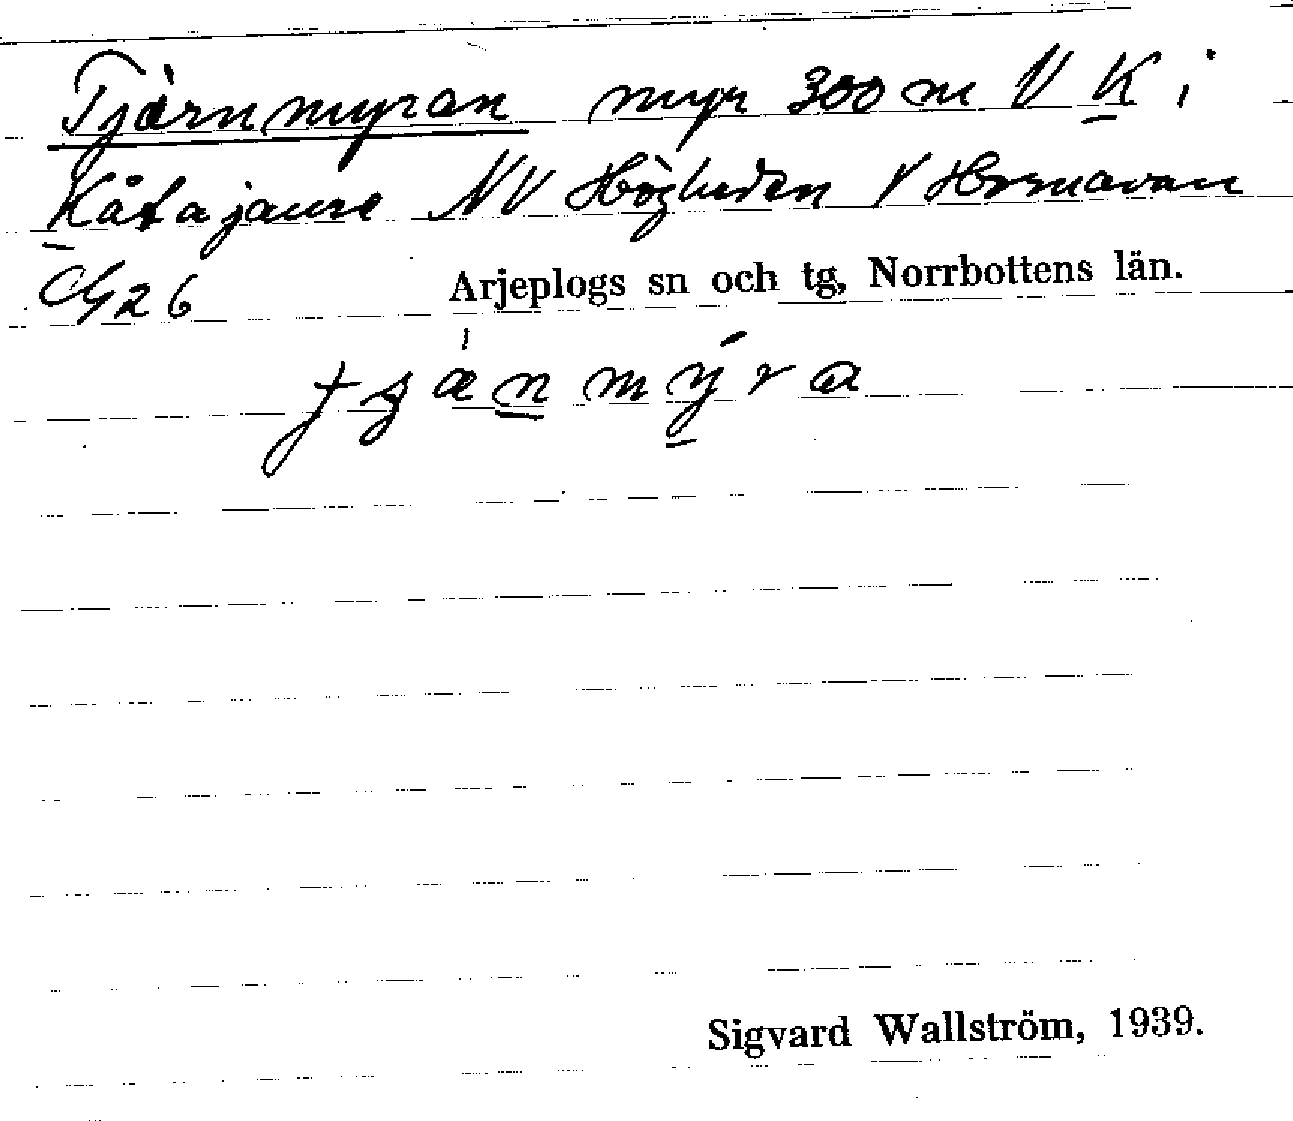 Tjärnmyran myr 300 m V K i
Kåtajaure NV Högheden V Hornavan
CG26
Arjeplogs sn och tg, Norrbottens län.
Sigvard Wallström, 1939.